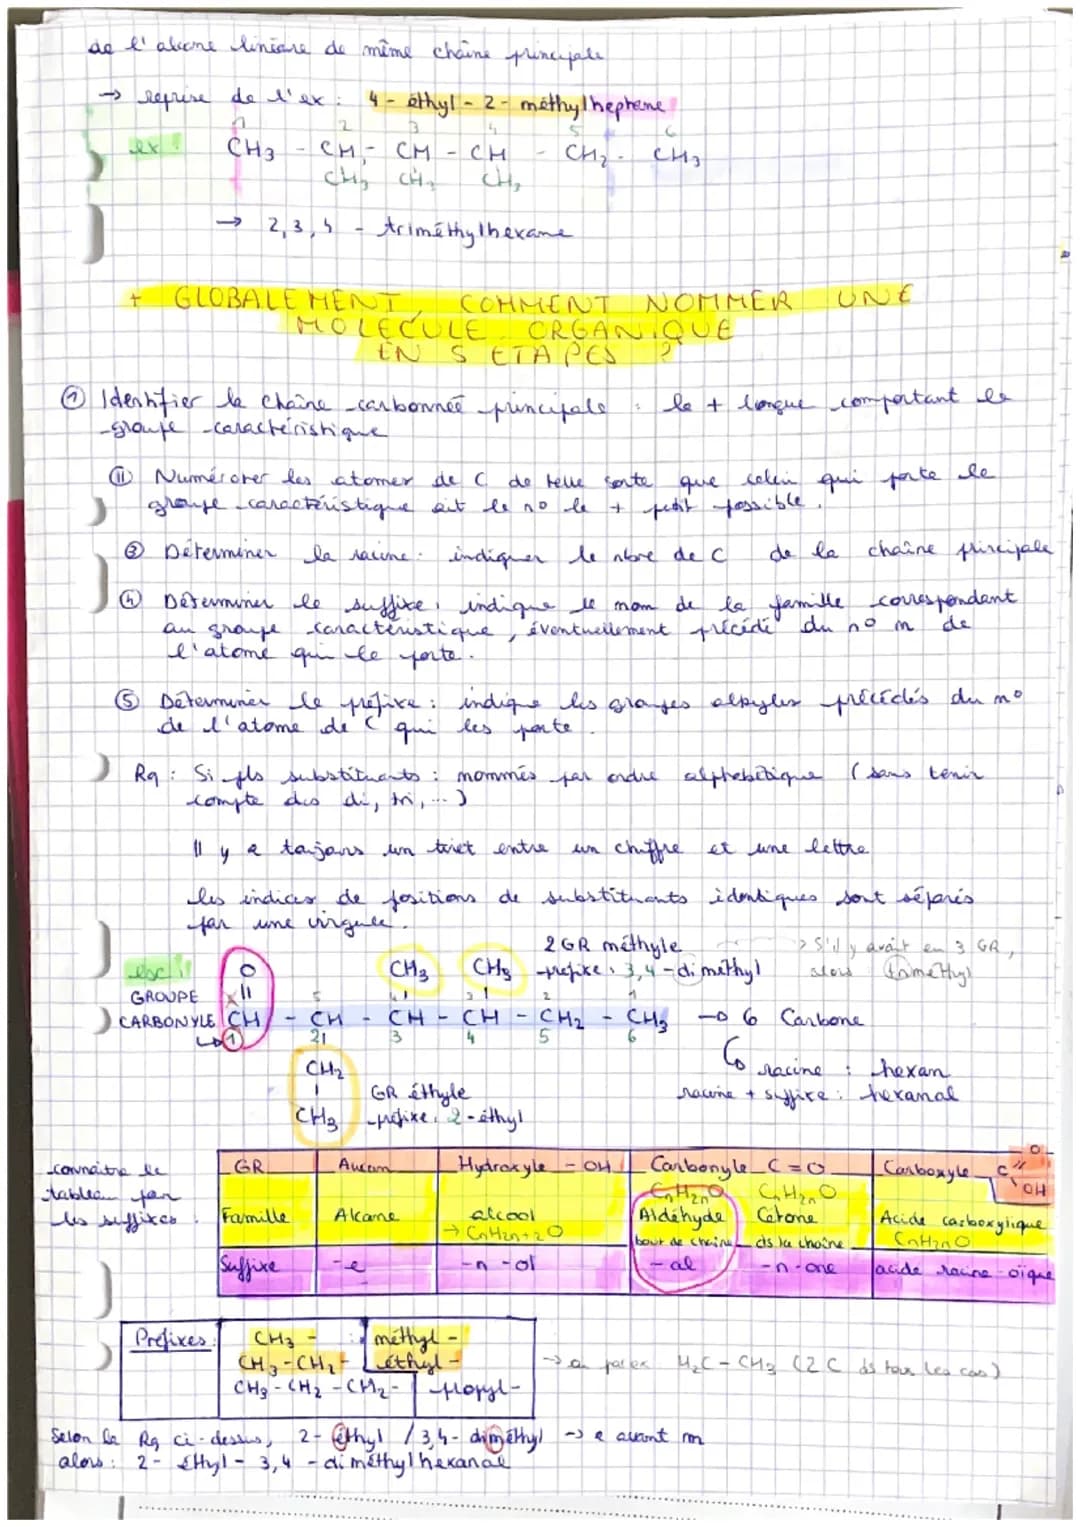 de l'alcane linéare de même chaîne principale
→ reprise de l'ex : 4 - éthyl - 2 - méthylheptane
1 2 3 4 5 6
ex : CH3 - CH - CH - CH - CH2 - CH3
CH3 CH3 CH3
→ 2,3,4 - triméthylhexane
+ GLOBALEMENT, COMMENT NOMMER UNE
MOLECULE ORGANIQUE
EN 5 ETAPES ?
① Identifier la chaîne carbonnée principale : la + longue comportant le
groupe caractéristique
② Numéroter les atomes de C de telle sorte que celui qui porte le
groupe caractéristique ait le no le + petit possible.
③ Déterminer la racine : indiquer le nbre de C de la chaîne principale
④ Déterminer le suffixe : indique le nom de la famille correspondant
au groupe caractéristique, éventuellement précédé du no n de
l'atome qui le porte.
⑤ Déterminer le préfixe : indique les groupes alkyles précédés du no
de l'atome de C qui les porte.
Rq : Si pls substituants : nommés par ordre alphabétique (sans tenir
compte des di, tri, ...)
Il y a toujours un tiret entre un chiffre et une lettre
les indices de positions de substituants identiques sont séparés
par une virgule.
2 GR méthyle → S'il y avait eu 3 GR,
exc : O CH3 CH3 préfixe : 3,4 - diméthyl alors triméthyl
GROUPE || 5 4 3 2 1
CARBONYLE CH - CH - CH - CH - CH2 - CH3 → 6 Carbone
1 2 3 4 5 6
CH2 ↳ racine : hexan
GR éthyle racine + suffixe : hexanal
CH3 préfixe : 2 - éthyl
connaître le
tableau par
les suffixes :
GR Aucun Hydroxyle - OH Carbonyle C=O Carboxyle C=O OH
CnH2nO CnH2nO
Famille Alcane alcool Aldéhyde Cétone Acide carboxylique
→ CnH2n+2O bout de chaîne ds la chaîne CnH2nO
Suffixe - e - n - ol - al - n - one acide racine - oïque
Préfixes : CH3 - méthyl -
CH3 - CH2 - éthyl - H2C - CH3 (2 C ds tous les cas)
CH3 - CH2 - CH2 - propyl -
Selon la Rq ci-dessus, 2 - éthyl / 3,4 - diméthyl → e avant m
alors : 2 - Ethyl - 3,4 - diméthylhexanal